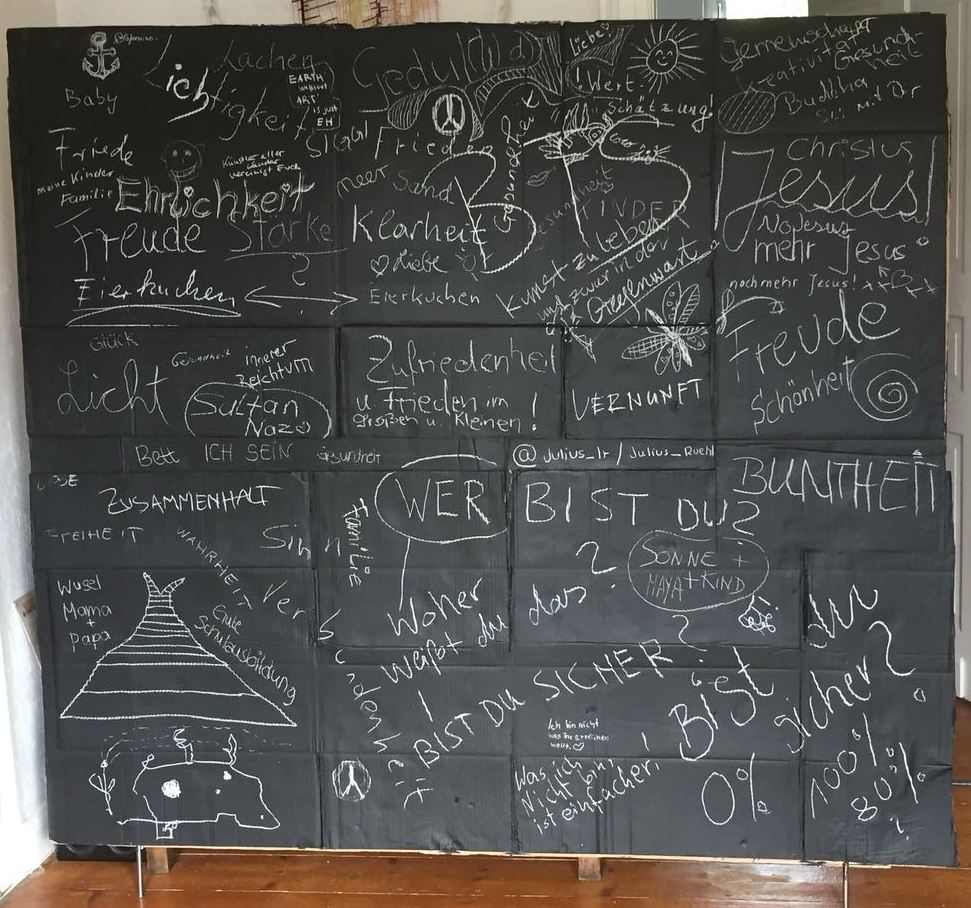 Baby
Lachen
Ich
tigkeit
EARTH
without
ART
is just
EH
Friede
meine Kinder
Familie
Künstler aller
Länder
vereinigt Euch
Ehrlichkeit
Freude Stärke
?
Eierkuchen
Geduld
Frieden
meer Sand
Klarheit
♡ Liebe
Eierkuchen
Liebe
! Wert!
Schätzung!
Gesundheit
KINDER
Kunst zu leben
und zwar in der
Gegenwart
Gemeinschaft
Kreativität
Gesundheit
Buddha
sei mit Dir
Christus
Jesus!
No Jesus
mehr Jesus
noch mehr Jesus!
Freude
Schönheit
Glück
Licht
Gesundheit
innerer
Reichtum
Sultan
Naz
Zufriedenheit
u. Frieden im
großen u. kleinen!
VERNUNFT
Bett
ICH SEIN
Gesundheit
@julius_lr / Julius_Ruehl
BUNTHEIT
LIEBE
ZUSAMMENHALT
FREIHEIT
WAHRHEIT
Sinn
Familie
Verbundenheit
Wusel
Mama
+
Papa
Gute
Schulausbildung
WER BIST DU?
Woher
weißt du
das?
SONNE +
MAYA + KIND
! BIST DU SICHER?
Bist du
sicher?
Ich bin nicht
was ihr erreichen
wollt. ♡
Was ich
Nicht bin,
ist einfacher!
0%
100%
80%
?